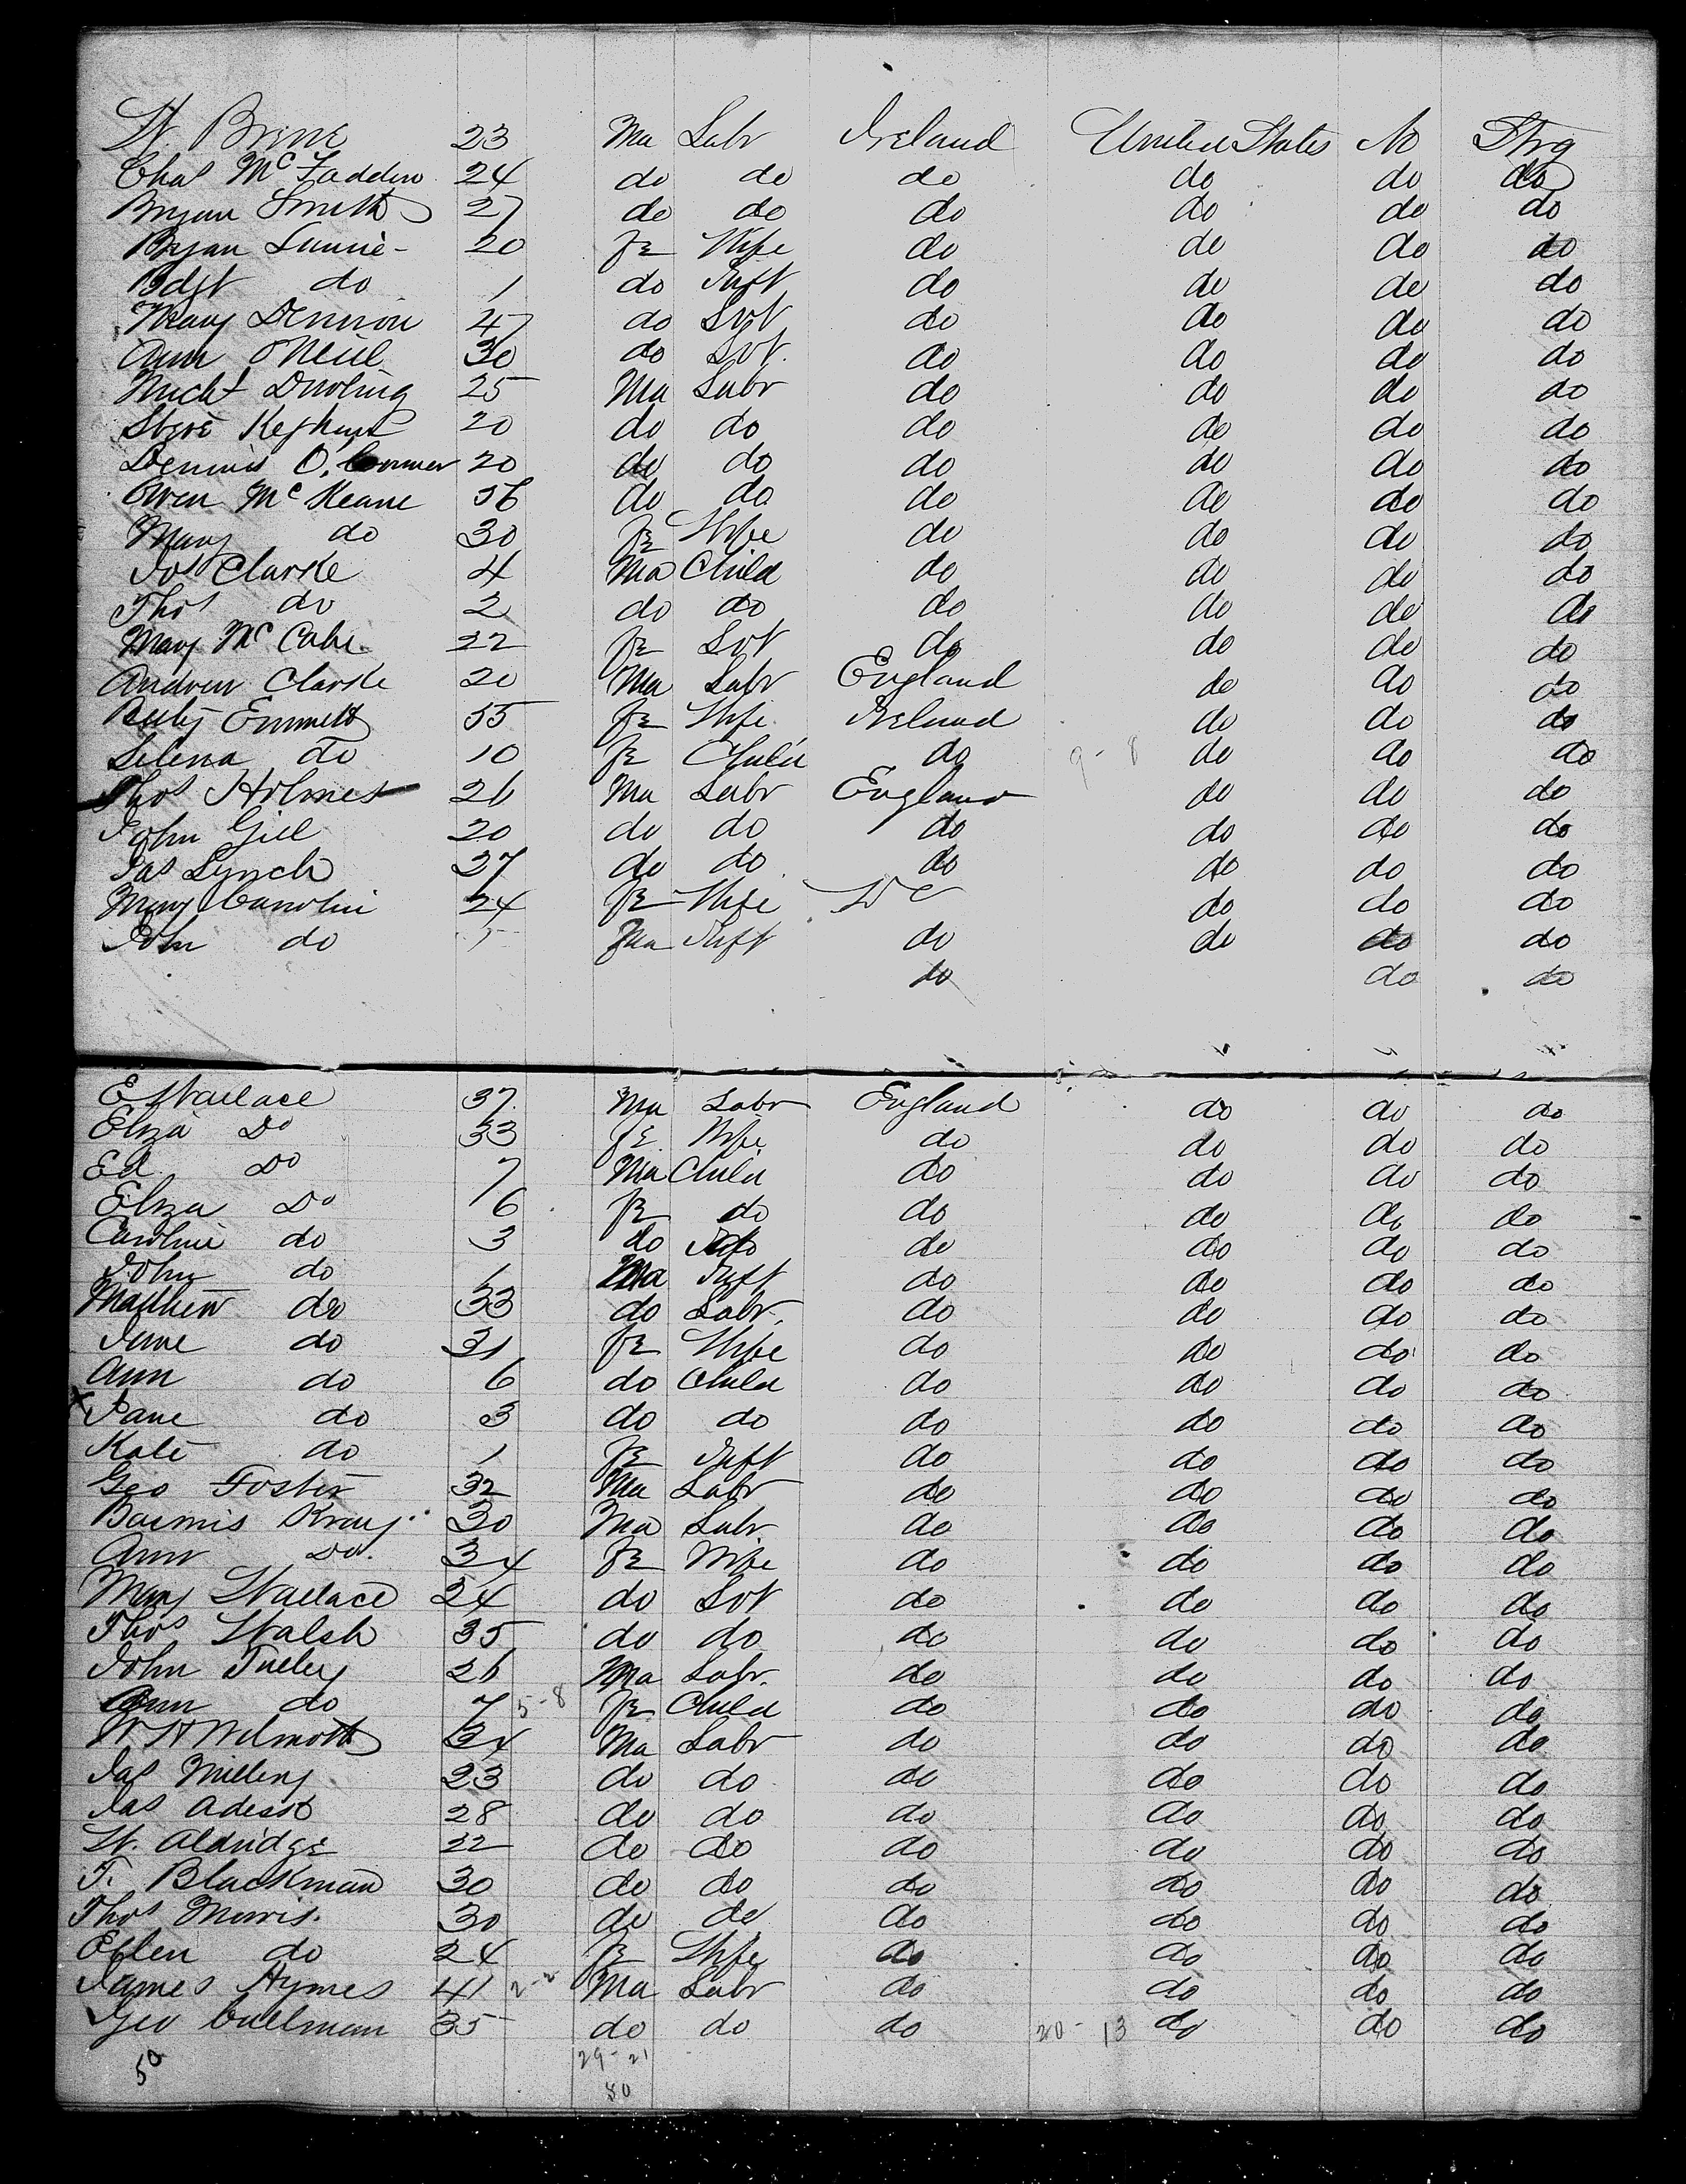 W. Brine 23 Ma Labr Ireland United States No Strg
Chas McFadden 24 do do do do do do
Bryan Smith 27 do do do do do do
Bryan 20 fe Wife do do do do
Bdgt do 1 do Inft do do do do
Mary Dennion 47 do Svt do do do do
Ann ONeill 30 do Svt. do do do do
Michl 25 Ma Labr do do do do
20 do do do do do do
Dennis O.Connor 20 do do do do do do
Owen McKeane 56 do do do do do do
Mary do 30 fe Wife do do do do
Jos Clarke 4 Ma Child do do do do
Thos do 2 do do do do do do
Mary McCabe 22 fe Svt do do do do
Andrew Clarke 20 Ma Labr England do do do
Emmett 55 fe Wife Ireland do do do
Selena do 10 fe Child do 9-8 do do do
Thos Holmes 26 Ma Labr England do do do
John Gill 20 do do do do do do
Jas Lynch 27 do do do do do do
Mary 24 fe Wife Do do do do
John do Ma Inft do do do do
do do do
E Wallace 37 Ma Labr England do do do
Eliza Do 33 fe Wife do do do do
Ed Do 7 Ma Child do do do do
Eliza Do 6 fe do do do do do
Caroline do 3 do do do do do do
John do 1 Ma Inft do do do do
Matthew do 33 do Labr. do do do do
Jane do 31 fe Wife do do do do
Ann do 6 do Child do do do do
x Jane do 3 do do do do do do
Kate do 1 fe Inft do do do do
Geo Foster 32 Ma Labr do do do do
30 Ma Labr. do do do do
Ann Do. 34 fe Wife do do do do
Mary Wallace 24 do Svt do do do do
Thos Walsh 35 do do do do do do
John 26 Ma Labr. do do do do
Ann do 7 5-8 fe Child do do do do
W H Wilmott 34 Ma Labr do do do do
Jas 23 do do do do do do
Jas 28 do do do do do do
W. Aldridge 22 do do do do do do
T. Blackman 30 do do do do do do
Thos Morris. 30 do do do do do do
Ellen do 24 fe Wife do do do do
James Hymes 41 2-2 Ma Labr do do do do
Geo Cullman 35 do do do 20-13 do do do
50 29-21